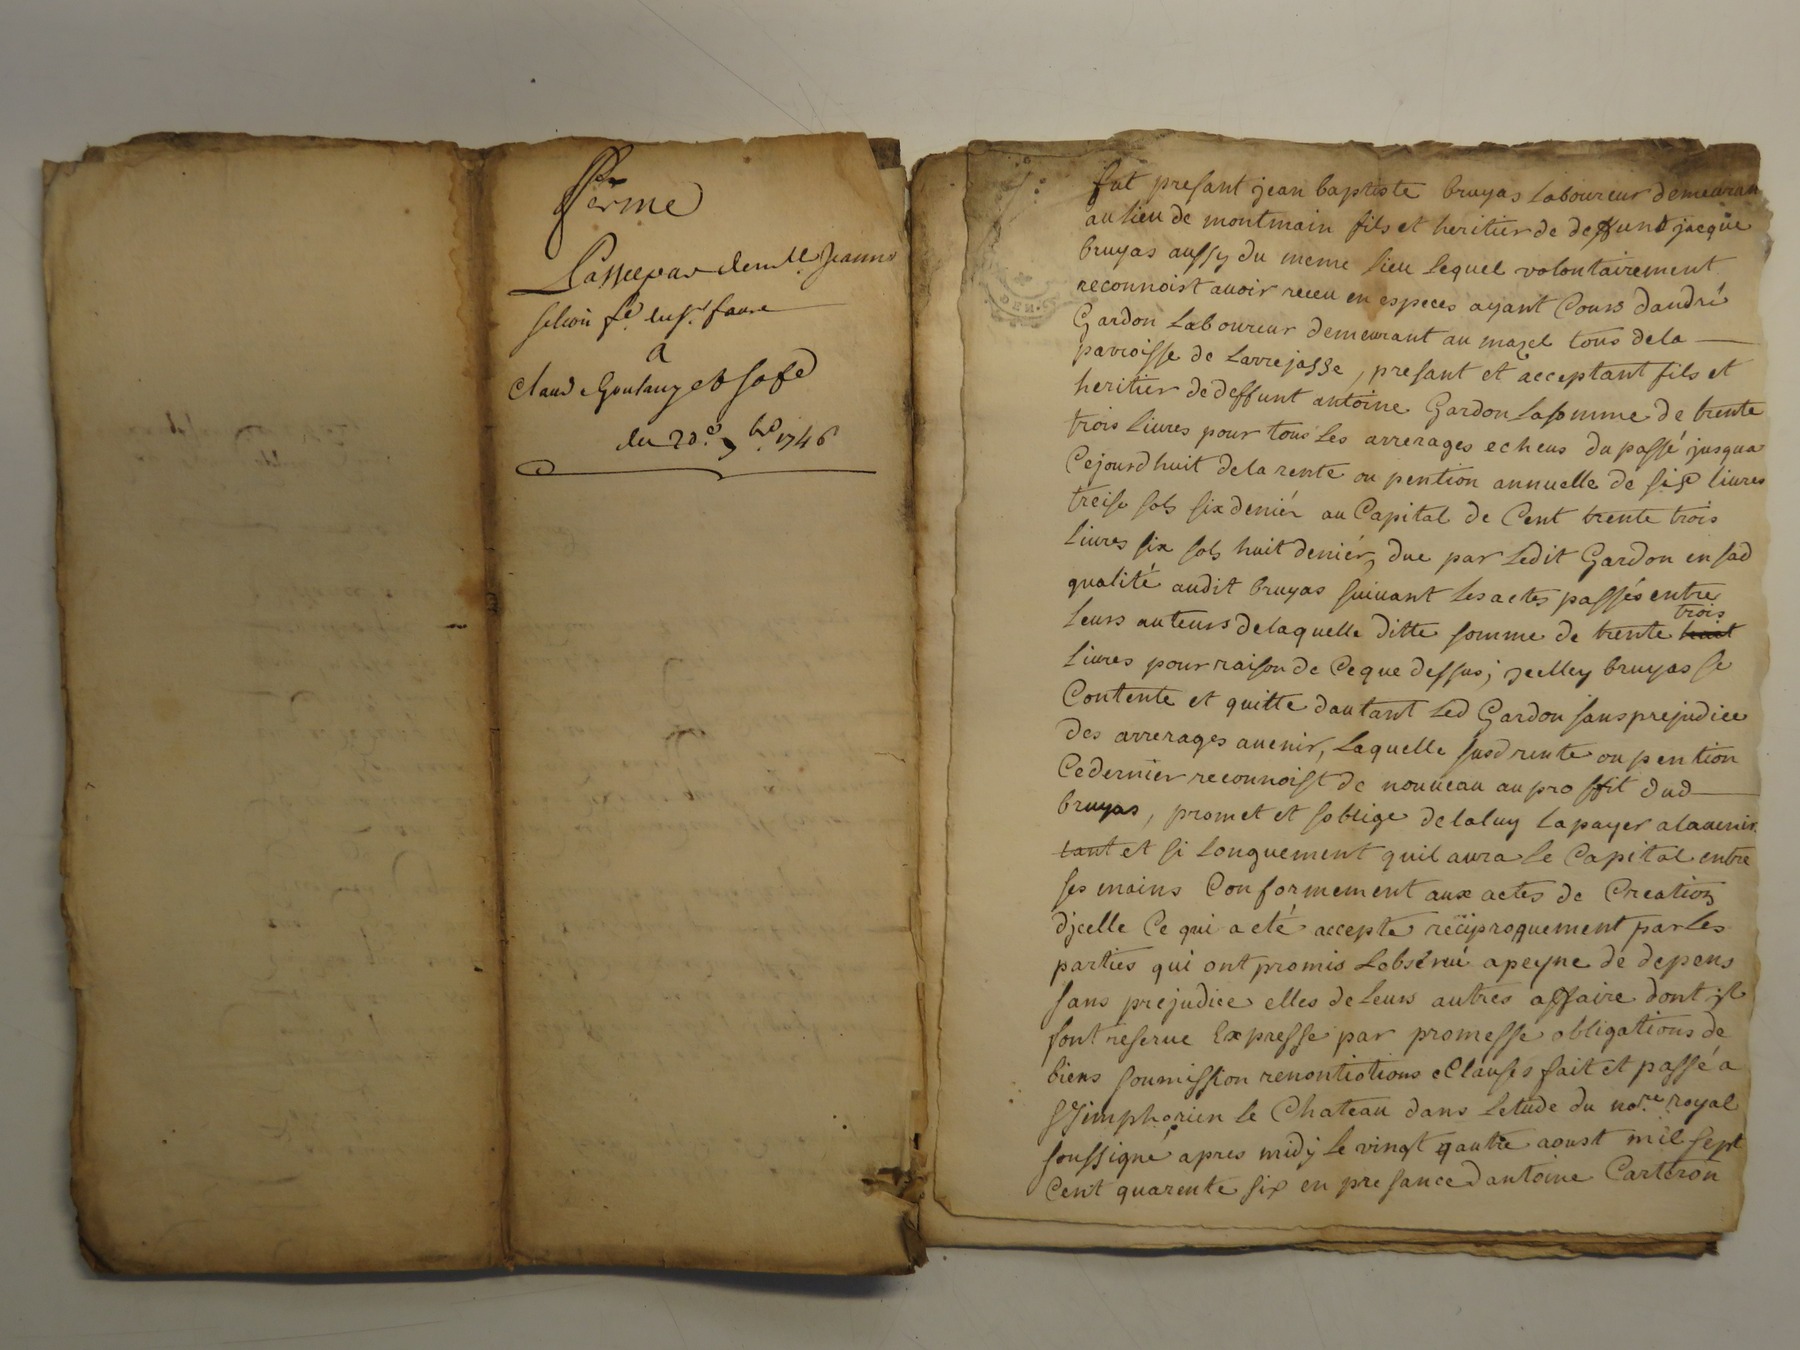 ferme
Passee par demlle Jeanne
fe du sr. faure
a
Claude Goutany et sa fe
du 20e 9bre 1746
fut presant jean baptiste bruyas Laboureur demeuran
au lieu de montmain fils et heritier de deffunt jacque
bruyas aussy du meme lieu Lequel volontairement
reconnoist auoir receu en especes ayant Cours dandré
Gardon Laboureur demeurant au mazel tous dela
parroisse de Larrejasse, presant et acceptant fils et
heritier de deffunt antoine Gardon La somme de trente
trois Liures pour tous Les arrerages echeus du passé jusqua
Cejourdhuit dela rente ou pention annuelle de six liures
treise sols six deniér au Capital de Cent trente trois
liures six sols huit deniér, due par Ledit Gardon en sad
qualité audit bruyas suiuant Les actes passés entre
Leurs auteurs delaquelle ditte somme de trente huit trois
liures pour raison de Ceque dessus, jcelley bruyas se
Contente et quitte dautant Led Gardon sans prejudice
des arrerages auenir, Laquelle susd rente ou pention
Cedernier reconnoist de nouueau au proffit dud
bruyas, promet et soblige delaluy La payer alauenir
tant et si Longuement quil aura Le Capital entre
ses mains Conformement aux actes de Creation
djcelle Ce qui a eté accepte reciproquement par Les
parties qui ont promis Lobserué apeyne de depens
sans prejudice elles de Leurs autres affaire dont jl
font reserue Expresse par promesse obligations de
biens soumission renontiotions Clauses fait et passé a
St Simphorien Le Chateau dans Letude du nore. royal
soussigné apres midy Le vingt qautre aoust mil sept
Cent quarente six en presance dantoine Carteron